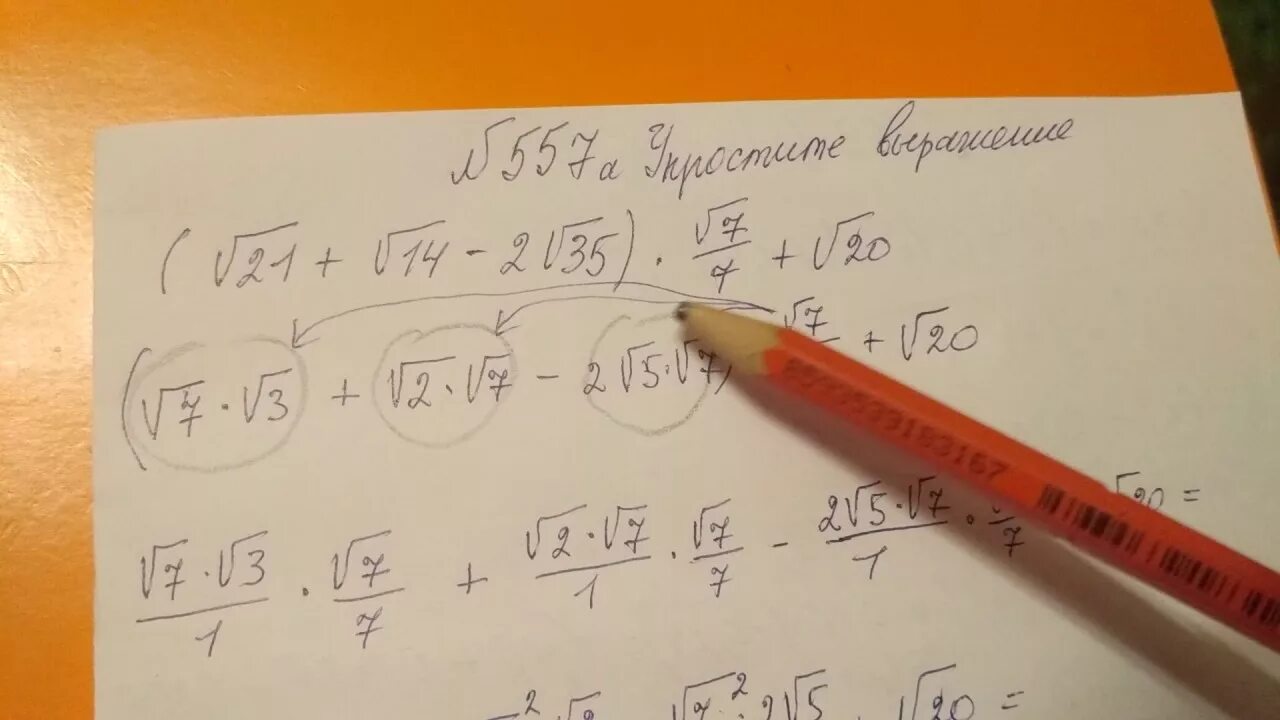 №557а Упростите выражение
(√21 + √14 - 2√35) · √7/7 + √20
(√7 · √3 + √2 · √7 - 2√5 · √7) √7 + √20
√7 · √3/1 · √7/7 + √2 · √7/1 · √7/7 - 2√5 · √7/1 · /7 √20 =
√7² · 2√5 √20 =